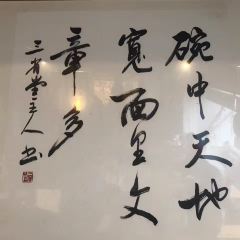 碗中天地
寬面里文
章多
三省堂主人书